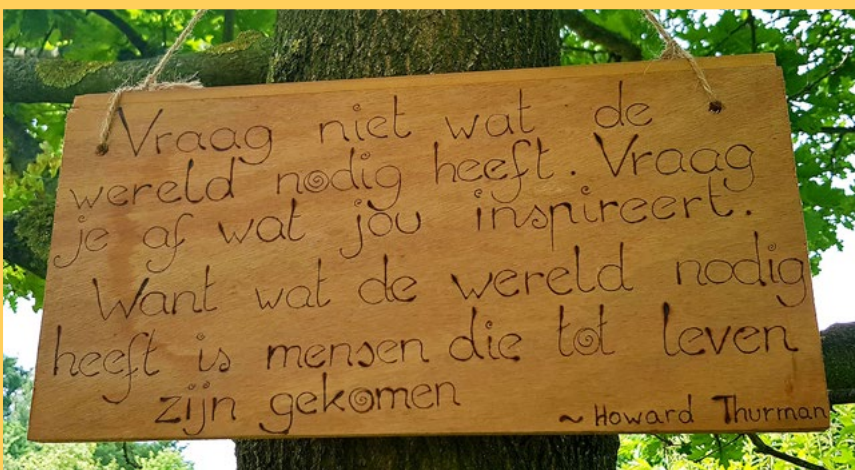 Vraag niet wat de
wereld nodig heeft. Vraag
je af wat jou inspireert.
Want wat de wereld nodig
heeft is mensen die tot leven
zijn gekomen
~ Howard Thurman